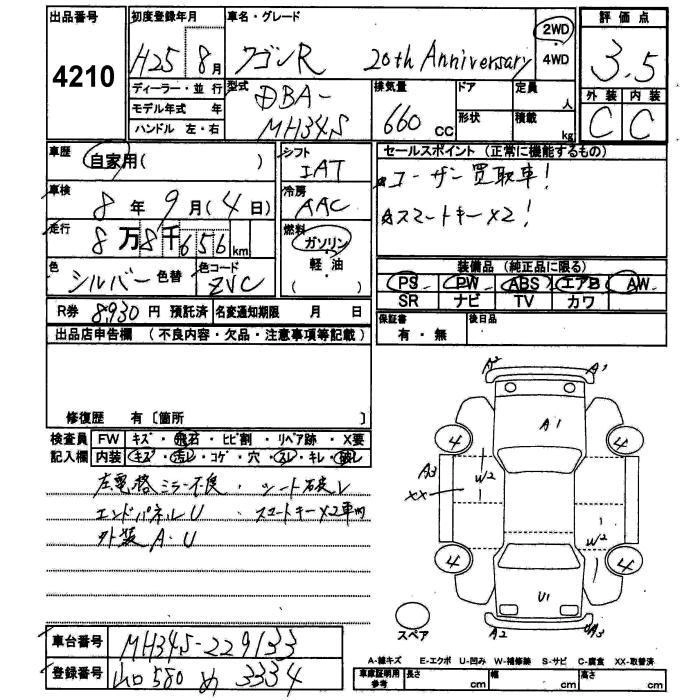 出品番号
4210
初度登録年月
H25 8月
車名・グレード
ワゴンR 20th Anniversary
2WD
・
4WD
評価点
3.5
外装 内装
C C
ディーラー・並行
モデル年式 年
ハンドル 左・右
型式
DBA-
MH34S
排気量
660 CC
ドア
形状
定員
人
積載
kg
車歴
自家用( )
車検
8年9月(4日)
走行
8万8千656km
色
シルバー 色替
色コード
ZVC
シフト
IAT
冷房
AAC
燃料
ガソリン
軽・油
( )
セールスポイント (正常に機能するもの)
☆ユーザー買取車!
☆スマートキーX2!
装備品 (純正品に限る)
PS PW ABS エアB AW
SR ナビ TV カワ
R券 8,930円 預託済 名変通知期限 月 日
保証書
有・無
後日品
出品店申告欄 (不良内容・欠品・注意事項等記載)
修復歴 有〔箇所 〕
検査員 FW キズ・飛石・ヒビ割・リペア跡・X要
記入欄 内装 キズ・汚レ・コゲ・穴・スレ・キレ・破レ
左電格ミラー不良・シート破レ
エンドパネルU スマートキーX2車内
外装A・U
A2 A1
A1
4 4
A3
XX
W2
W2
4 4
U1
A2 UA3
スペア
車台番号
MH34S-229133
登録番号
山口580 め 3334
A-線キズ E-エクボ U-凹み W-補修跡 S-サビ C-腐食 XX-交換済
車庫証明用
参考
長さ cm 幅 cm 高さ cm